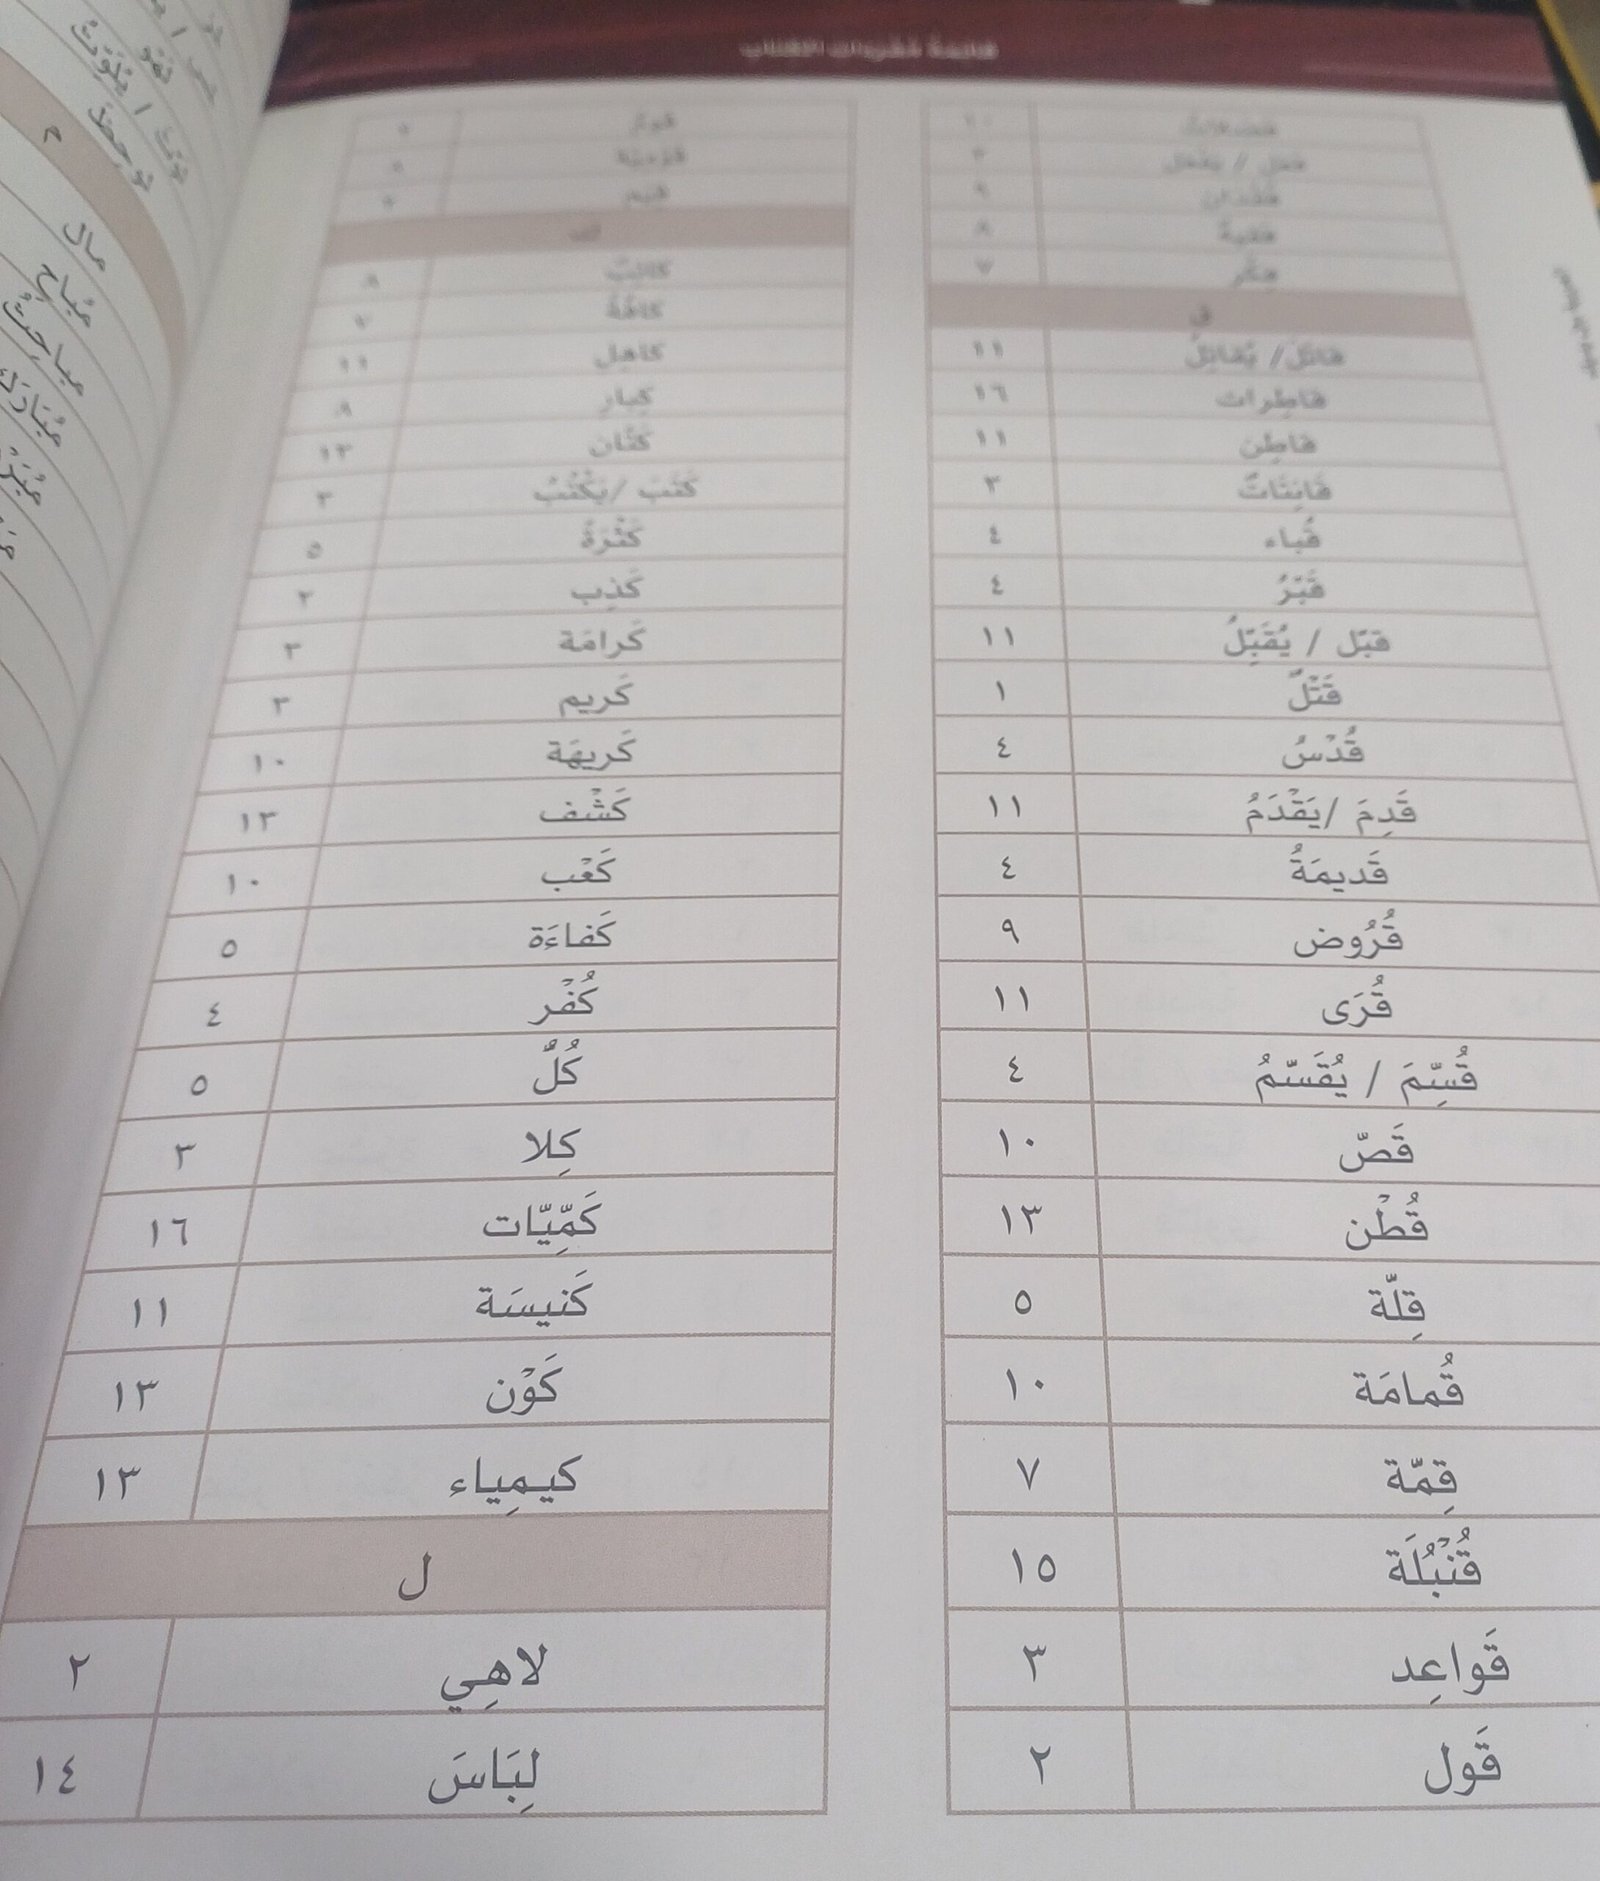 قائمة مفردات الكتاب
٣
فَقْدان ٩
٨
٧
ق
قاتَلَ / يُقاتِلُ ١١
قاطِرات ١٦
قاطِن ١١
قانِتَاتٌ ٣
قُباء ٤
قَبْرُ ٤
قبّل / يُقَبِّلُ ١١
قَتْلٌ ١
قُدْسُ ٤
قَدِمَ / يَقْدَمُ ١١
قَديمَةُ ٤
قُرُوض ٩
قُرَى ١١
قُسِّمَ / يُقَسّمُ ٤
قَصّ ١٠
قُطْن ١٣
قِلّة ٥
قُمامَة ١٠
قِمّة ٧
قُنْبُلَة ١٥
قَواعِد ٣
قَول ٢
ك
كاتِبٌ ٨
كافّةً
كاهِل ١١
كِبار ٨
كَتّان ١٣
كَتَبَ / يَكْتُبُ ٣
كَثْرَةُ ٥
كَذِب ٢
كَرامَة ٣
كَريم ٣
كَريهَة ١٠
كَشْف ١٣
كَعْب ١٠
كَفاءَة ٥
كُفْر ٤
كُلُّ ٥
كِلا ٣
كَمِّيّات ١٦
كَنيسَة ١١
كَوْن ١٣
كيمِياء ١٣
ل
لاهِي ٢
لِبَاسَ ١٤
م
مال
مُباح
مباحِثُ